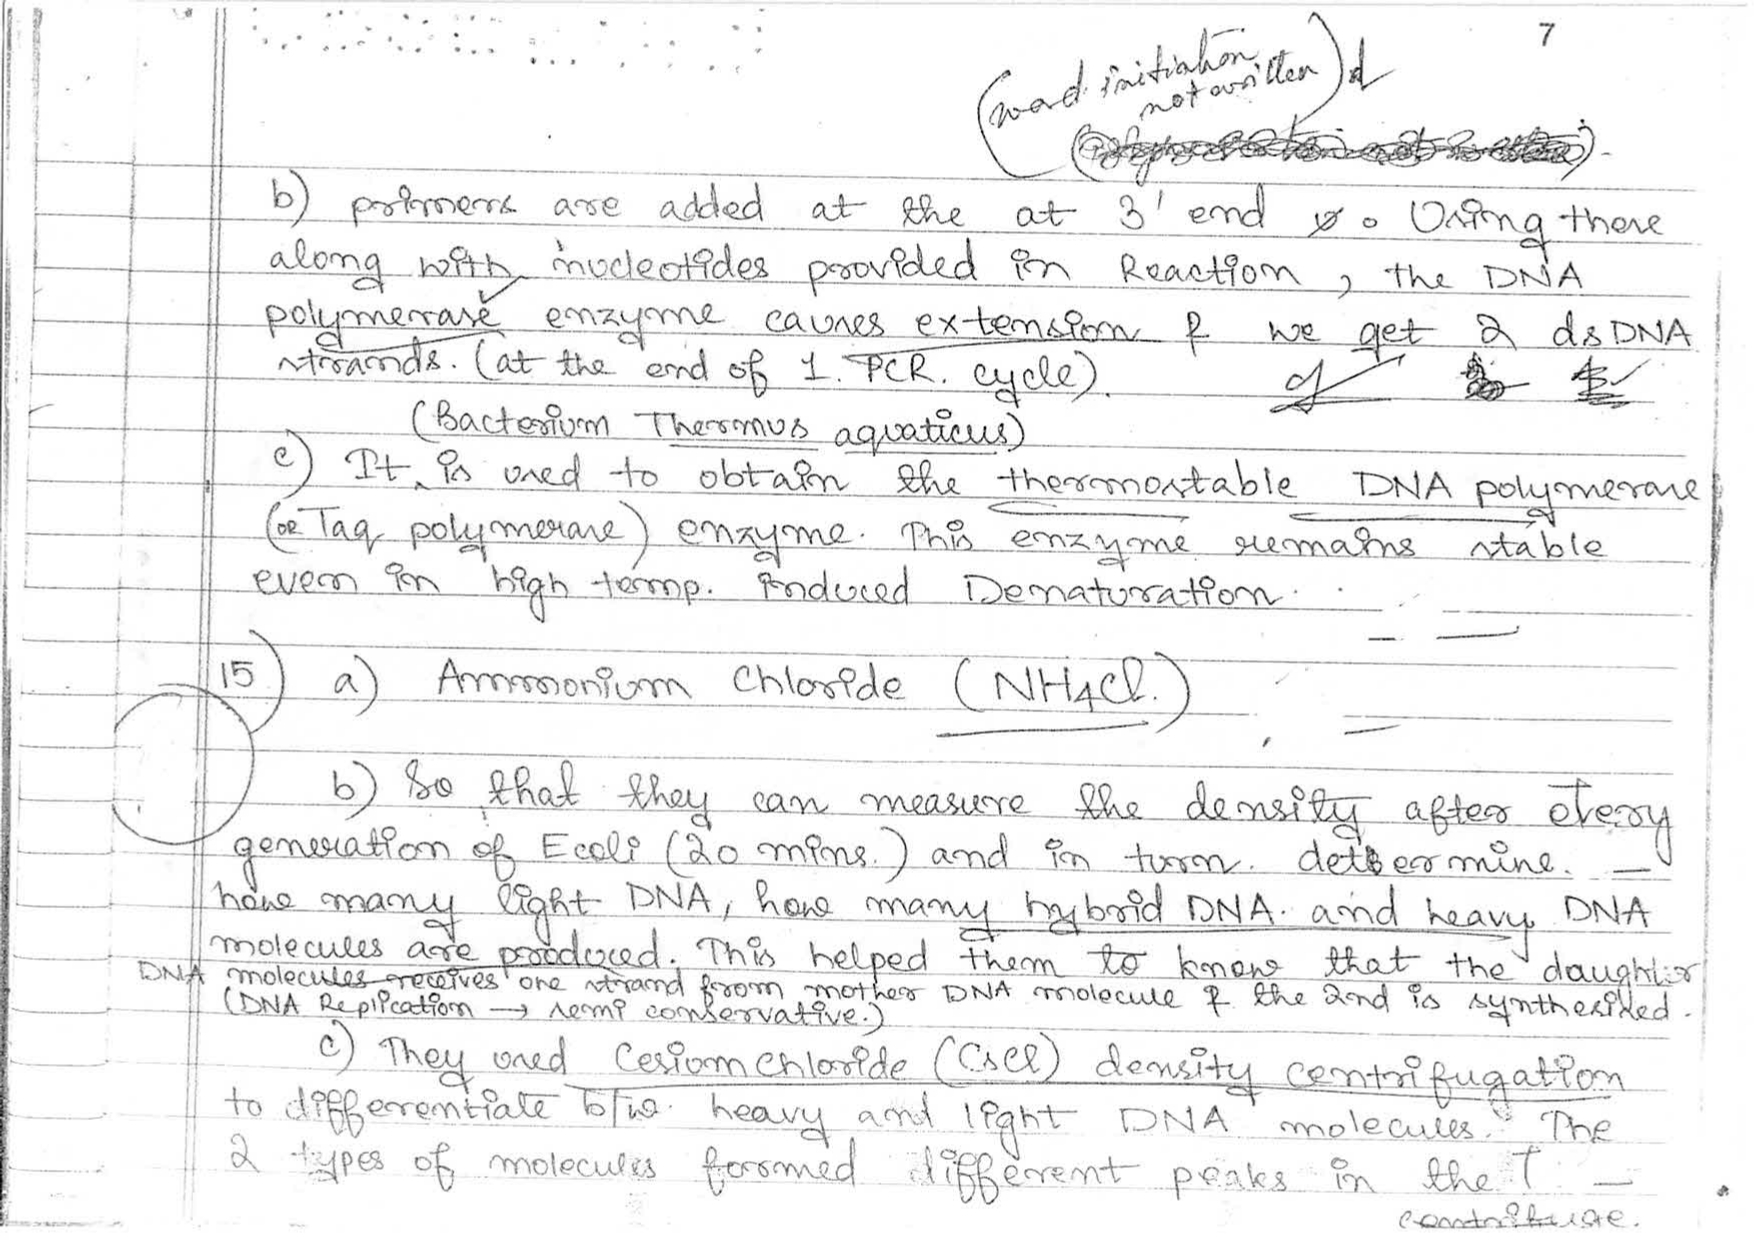 7
(word initiation
not written)
b) primers are added at the at 3' end . Using these
along with nucleotides provided in Reaction, the DNA
polymerase enzyme causes extension & we get 2 dsDNA
strands. (at the end of 1. PCR. cycle).
(Bacterium Thermus aquaticus)
c) It is used to obtain the thermostable DNA polymerase
(or Taq polymerase) enzyme. This enzyme remains stable
even in high temp. induced Denaturation.
15) a) Ammonium Chloride (NH4Cl.)
b) So that they can measure the density after every
generation of Ecoli (20 mins.) and in turn. determine. —
how many light DNA, how many hybrid DNA. and heavy DNA
molecules are produced. This helped them to know that the daughter
DNA molecules receives one strand from mother DNA molecule & the 2nd is synthesized.
(DNA Replication → semi conservative.)
c) They used Cesium chloride (CsCl) density centrifugation
to differentiate b/w. heavy and light DNA molecules. The
2 types of molecules formed different peaks in the —